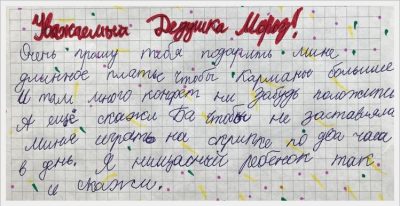 Уважаемый Дедушка Мороз!
Очень прошу тебя подарить мине
длинное платье чтобы карманы большие
И там много конфет ни забудь положить
А ещё скажи Ба чтобы не заставляла
мине играть на скрипке по два часа
в день. Я нищасный ребёнок так
и скажи.